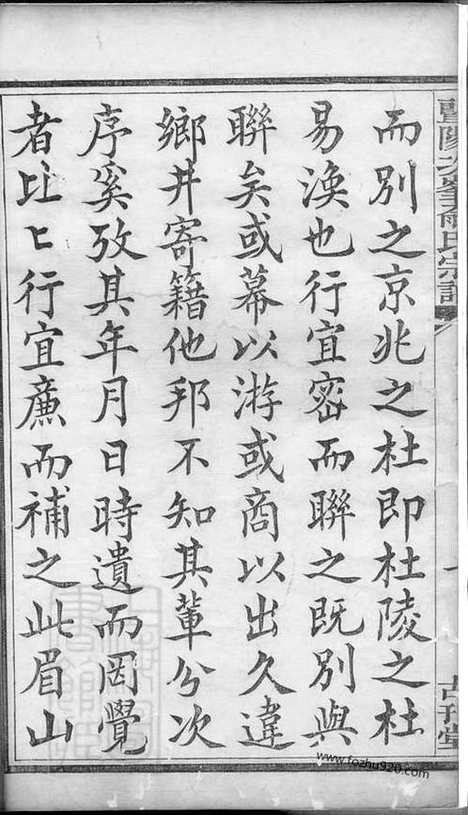 而別之京兆之杜即杜陵之杜
易渙也行宜密而聯之既別與
聯矣或幕以游或商以出久違
鄉井寄籍他邦不知其輩分次
序奚攷其年月日時遺而罔覺
者比匕行宜廉而補之此眉山
www.fozhu920.com